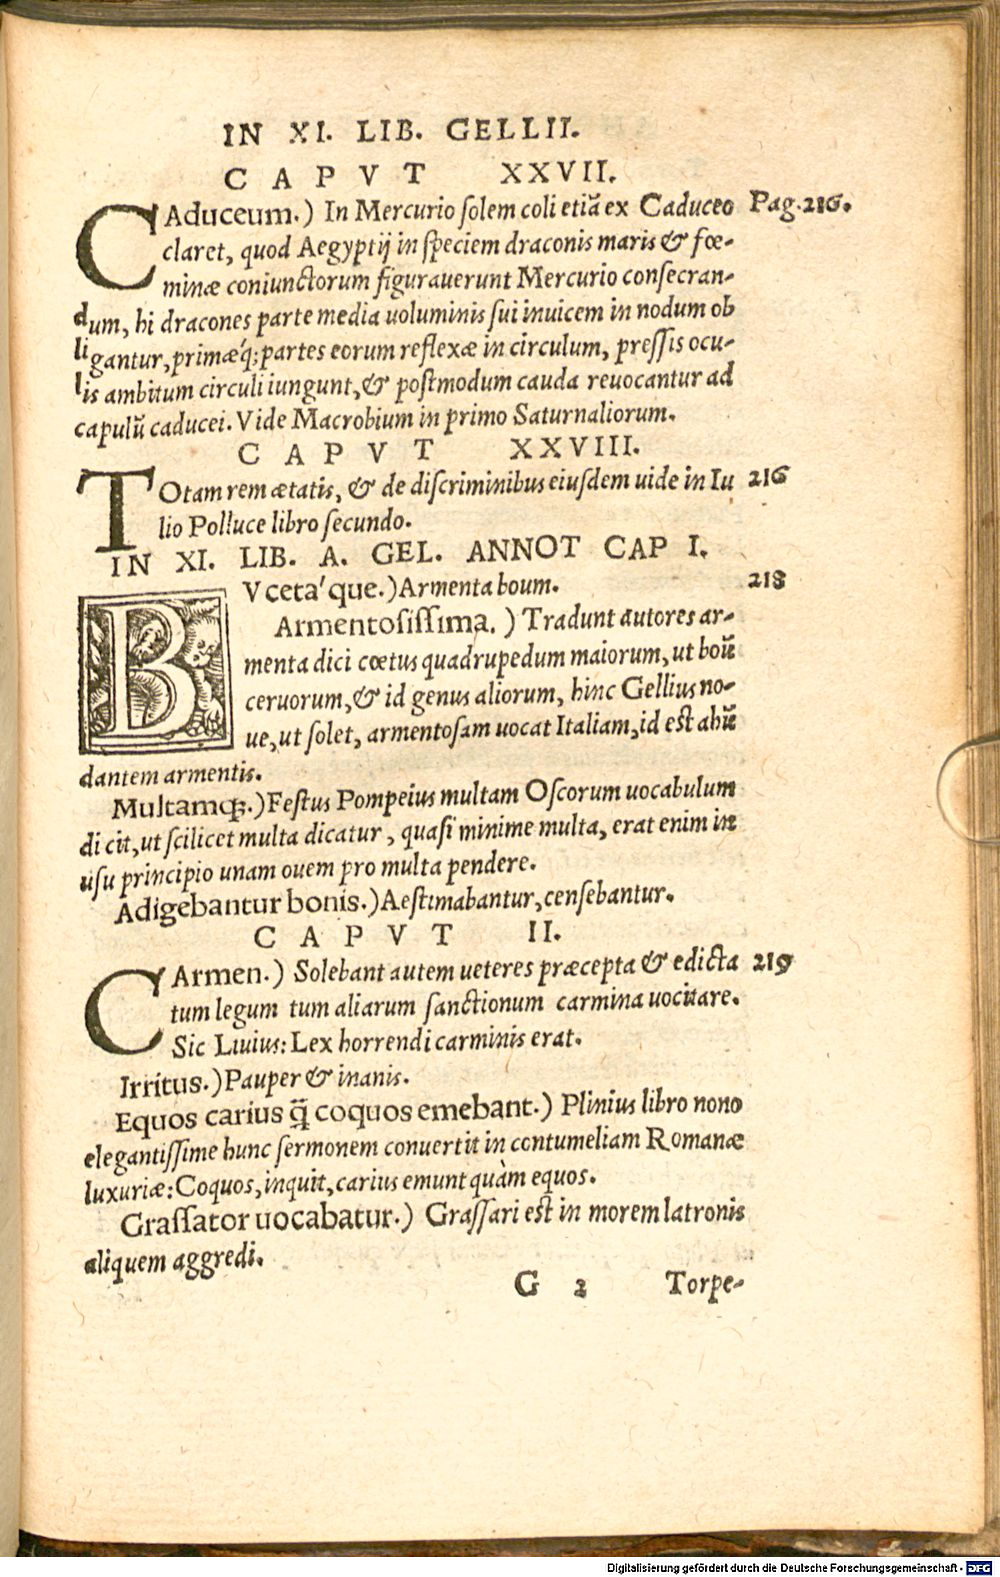 IN XI. LIB. GELLII.
CAPVT XXVII.
CAduceum.) In Mercurio ſolem coli etiā ex Caduceo Pag. 216.
claret, quod Aegyptij in ſpeciem draconis maris & fœ-
minæ coniunctorum figurauerunt Mercurio conſecran-
dum, hi dracones parte media uoluminis ſui inuicem in nodum ob
ligantur, primæq́; partes eorum reflexæ in circulum, preſſis ocu-
lis ambitum circuli iungunt, & poſtmodum cauda reuocantur ad
capulū caducei. Vide Macrobium in primo Saturnaliorum.
CAPVT XXVIII.
TOtam rem ætatis, & de diſcriminibus eiuſdem uide in Iu 216
lio Polluce libro ſecundo.
IN XI. LIB. A. GEL. ANNOT CAP I.
BVceta'que.) Armenta boum. 218
Armentoſiſſima.) Tradunt autores ar-
menta dici cœtus quadrupedum maiorum, ut boū
ceruorum, & id genus aliorum, hinc Gellius no-
ue, ut ſolet, armentoſam uocat Italiam, id eſt abū
dantem armentis.
Multamq;.) Feſtus Pompeius multam Oſcorum uocabulum
di cit, ut ſcilicet multa dicatur, quaſi minime multa, erat enim in
uſu principio unam ouem pro multa pendere.
Adigebantur bonis.) Aeſtimabantur, cenſebantur.
CAPVT II.
CArmen.) Solebant autem ueteres præcepta & edicta 219
tum legum tum aliarum ſanctionum carmina uocitare.
Sic Liuius: Lex horrendi carminis erat.
Irritus.) Pauper & inanis.
Equos carius q̃ coquos emebant.) Plinius libro nono
elegantiſſime hunc ſermonem conuertit in contumeliam Romanæ
luxuriæ: Coquos, inquit, carius emunt quàm equos.
Graſſator uocabatur.) Graſſari eſt in morem latronis
aliquem aggredi.
G 2 Torpe-
Digitalisierung gefördert durch die Deutsche Forschungsgemeinschaft - DFG